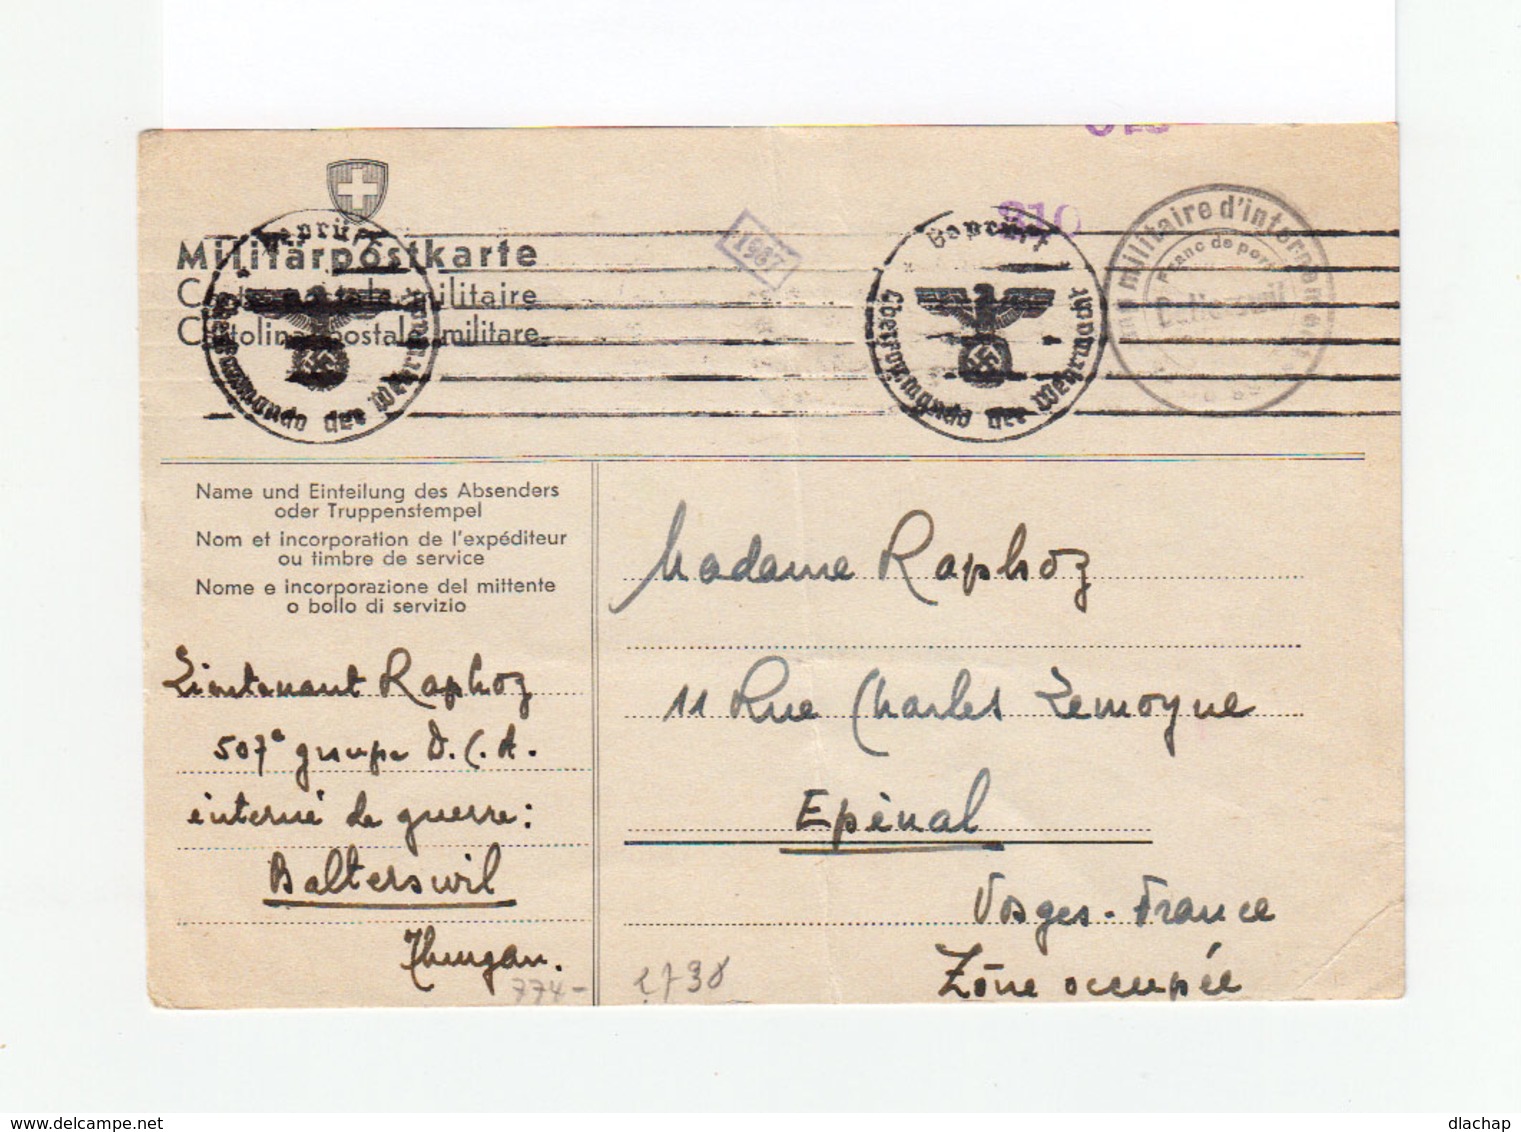 210
Militärpostkarte
Carte postale militaire
Cartolina postale militare
Geprüft
Oberkommando der Wehrmacht
1987
Geprüft
Oberkommando der Wehrmacht
militaire d'internement
Franc de port
Balterswil
Name und Einteilung des Absenders
oder Truppenstempel
Nom et incorporation de l'expéditeur
ou timbre de service
Nome e incorporazione del mittente
o bollo di servizio
Lieutenant Raphoz
507e groupe D.C.A.
interné de guerre:
Balterswil
Thurgau.
774-
Madame Raphoz
11 Rue Charles Lemoyne
Epinal
Vosges - France
Zône occupée
delcampe.net
dlachap